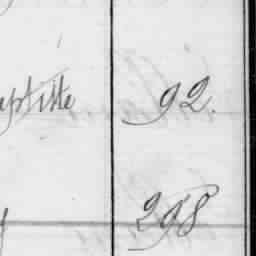 aptiste 92.
298